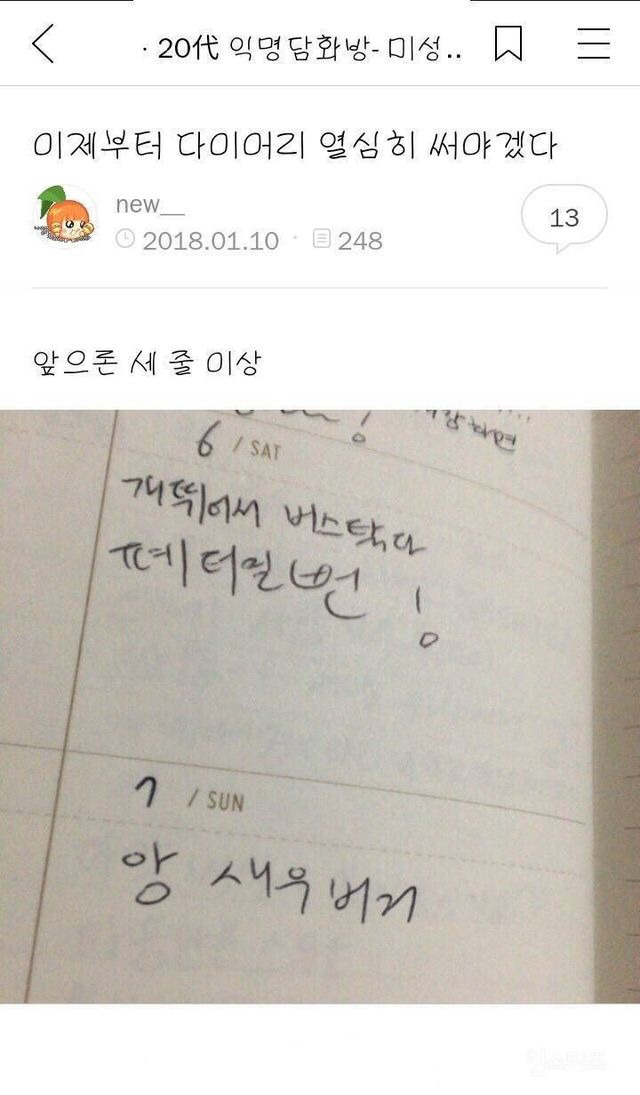 · 20代 익명담화방- 미성..
이제부터 다이어리 열심히 써야겠다
new__
2018.01.10 · 248
13
앞으론 세 줄 이상
6 / SAT
개뛰어서 버스탁다
폐터질뻔 !
7 / SUN
앙 새우버거
인스티즈